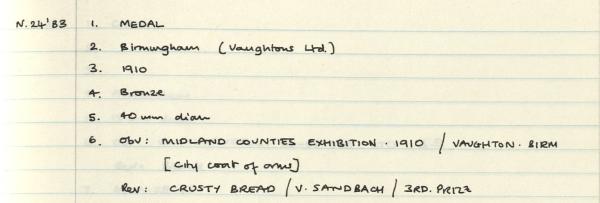 N.24'83 1. MEDAL
2. Birmingham (Vaughtons Ltd.)
3. 1910
4. Bronze
5. 40mm diam
6. Obv: MIDLAND COUNTIES EXHIBITION · 1910 / VAUGHTON · BIRM
[City coat of arms]
Rev: CRUSTY BREAD / V. SANDBACH / 3RD. PRIZE